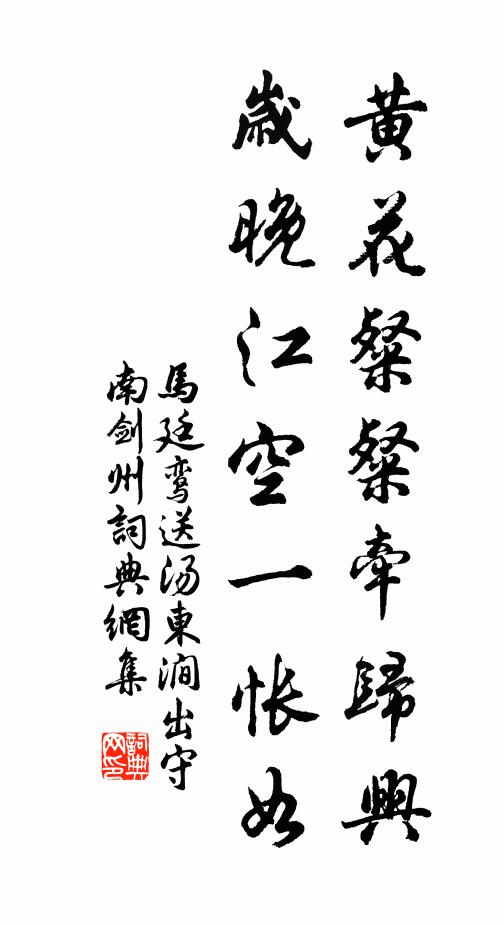 黄花粲粲牽歸興
歲晚江空一悵如
馬廷鸾送汤東澗出守
南劍州詞典網集
詞典網印